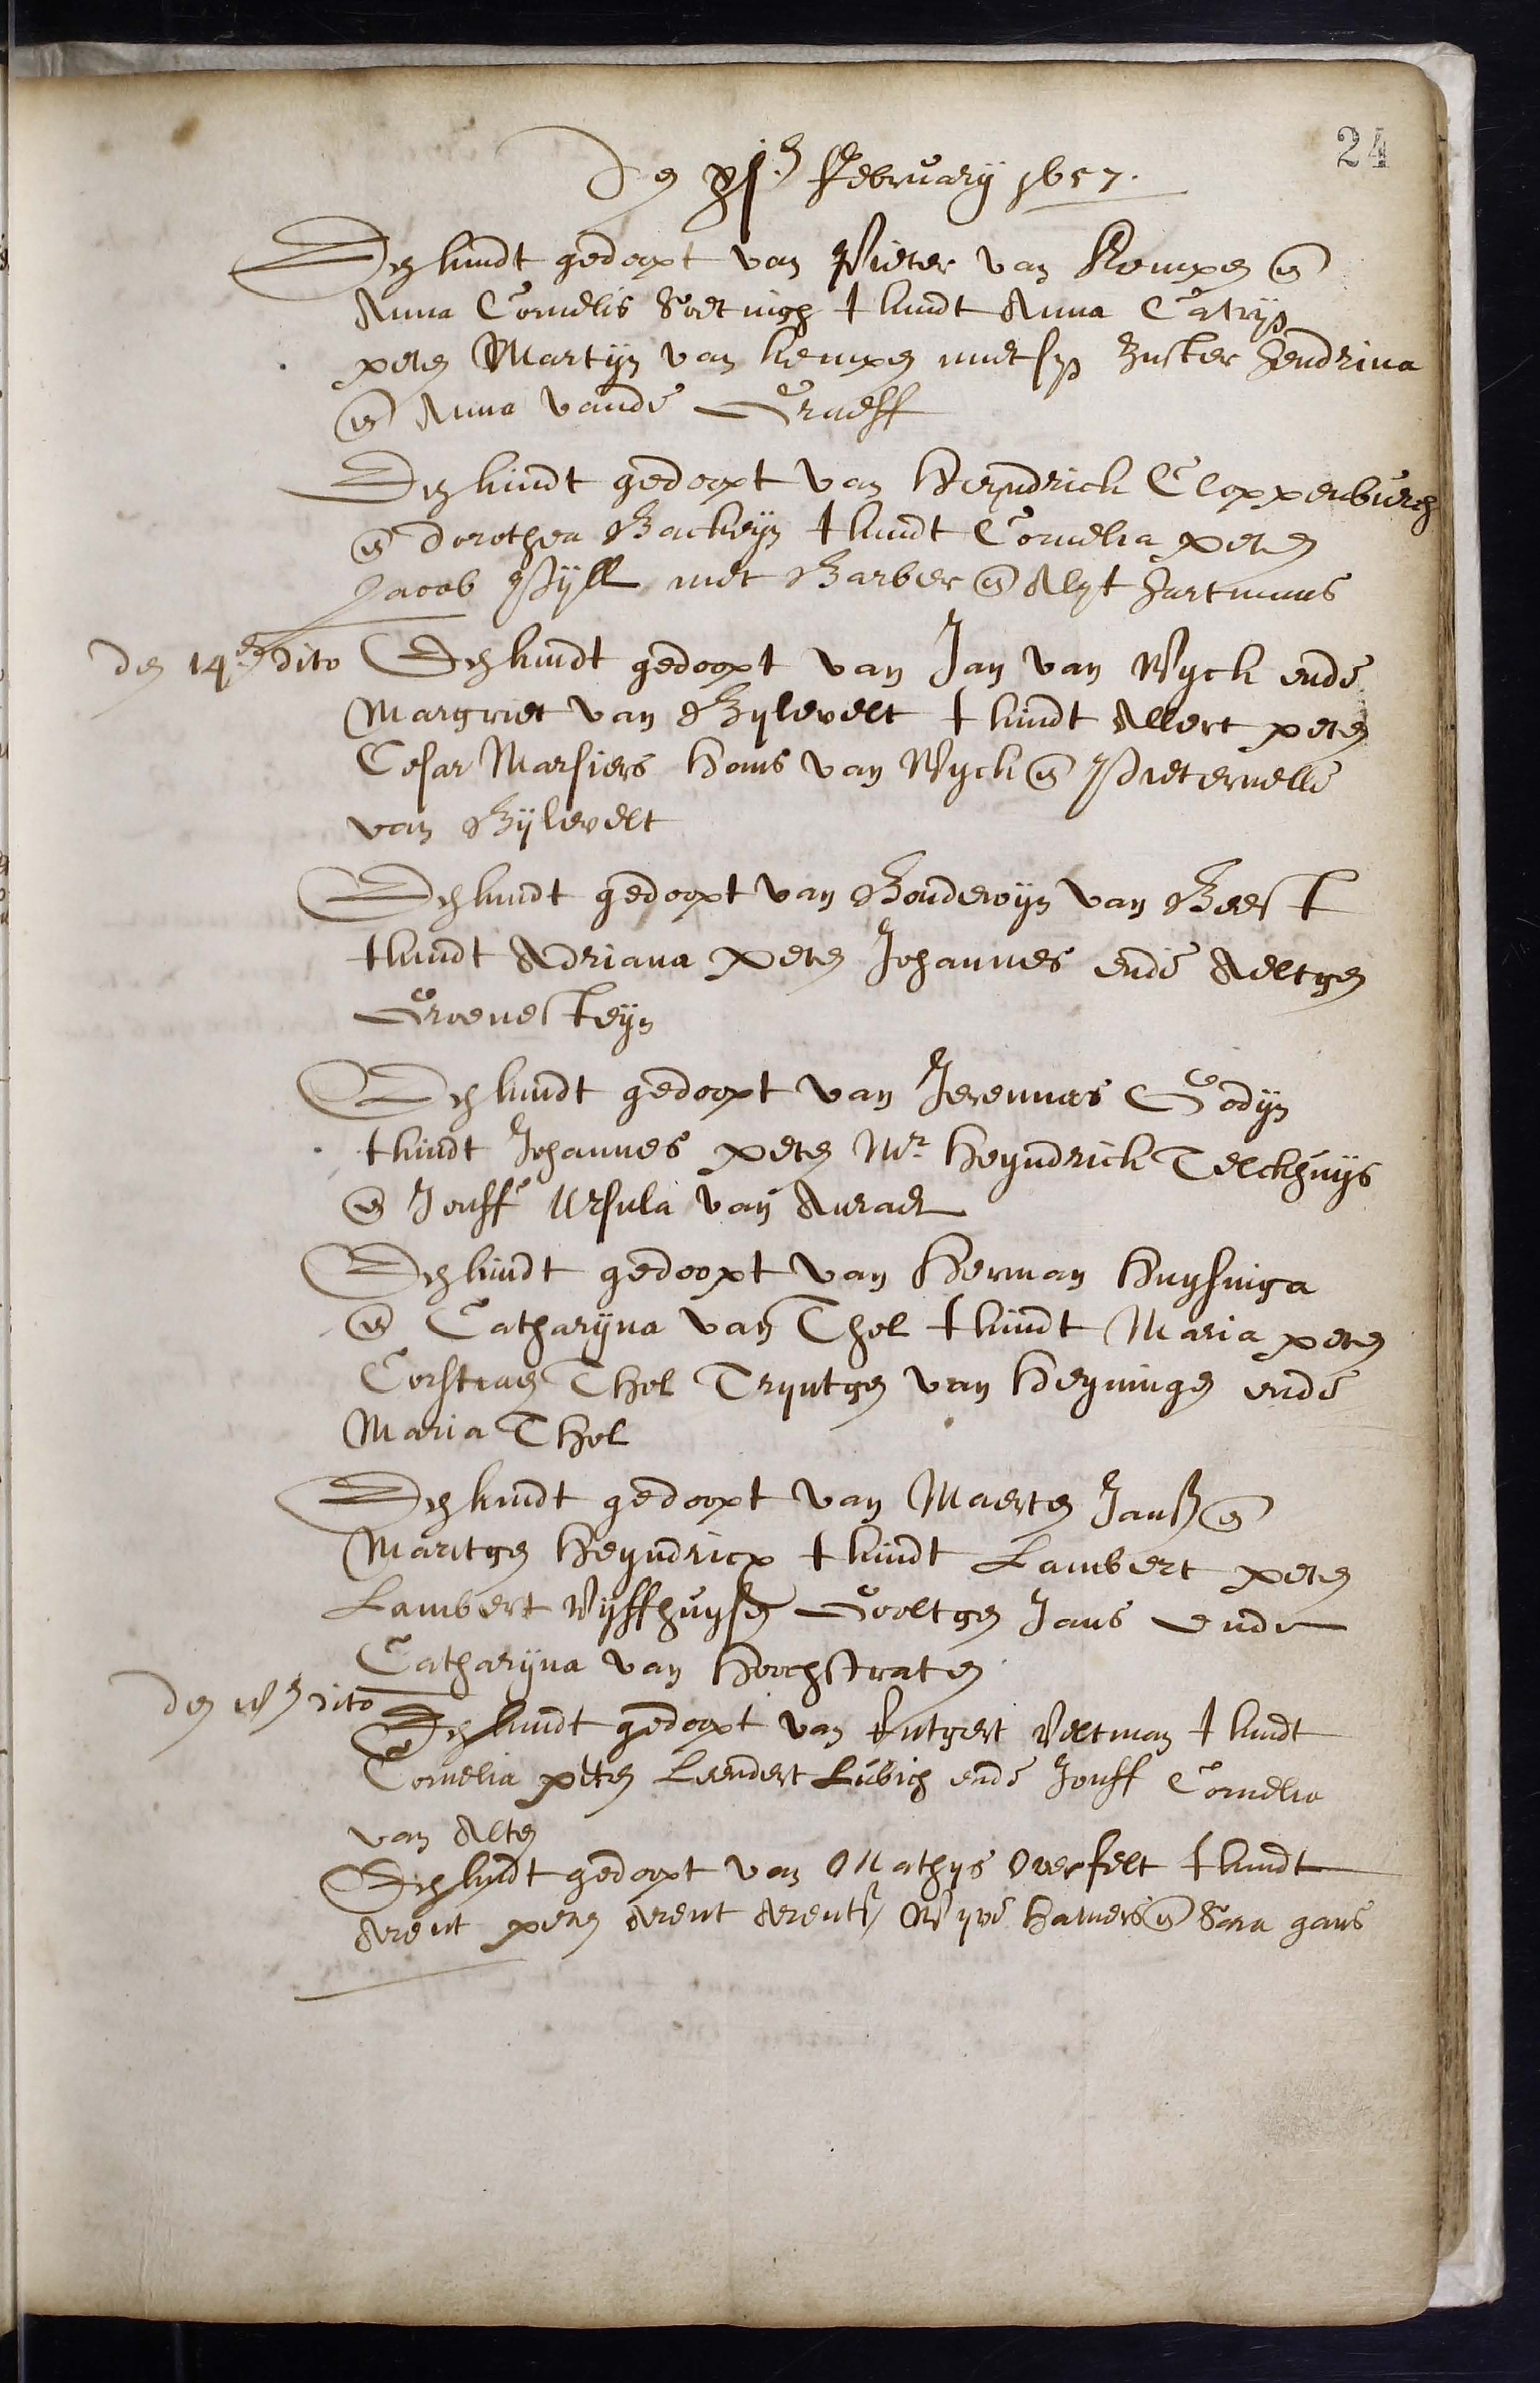 24
Den xjen February 1657.
Een kindt gedoopt van Pieter van Kempen en
Anna Cornelis Soetingh t kindt Anna Catrijn
peten Martijn van Kempen met syn Suster Hendrina
en Anna vande Graeff
Een kindt gedoopt van Heyndrick Cloppenburch
en Dorothea Backeyn t kindt Cornelia peten
Jacob Pijll met Barber en Alyt Hartmans
den 14en dito Een kindt gedoopt van Jan van Wyck ende
Margriet van Bylevelt t kindt Allert peten
Cesar Marsiers Hans van Wyck en Pieternelle
van Bijlevelt
Een kindt gedoopt van Boudewijn van Beest
t kindt Adriana peten Johannes ende Aeltgen
Groenesteyn
Een kindt gedoopt van Jeremias Godijn
t kindt Johannes peten Mr Heyndrick Telckhuijs
en Jouff Ursula van
Een kindt gedoopt van Herman Huysinga
en Catharijna van Thol t kindt Maria peten
Corstiaen Thol Tryntgen van Heyningen ende
Maria Thol
Een kindt gedoopt van Maerten Jansz en
Maritgen Heyndricx t kindt Lambert peten
Lambert Vyffhuysen Gooltgen Jans ende
Catharijna van Hoochstraten
den dito
Een kindt gedoopt van Rutgert Veltman t kindt
Cornelia peten Leendert Lubich ende Jouff Cornelia
van Alten
Een kindt gedoopt van Mathys Overfelt t kindt
Arent peten Arent Arentsz Wyve Hamers en Sara gans